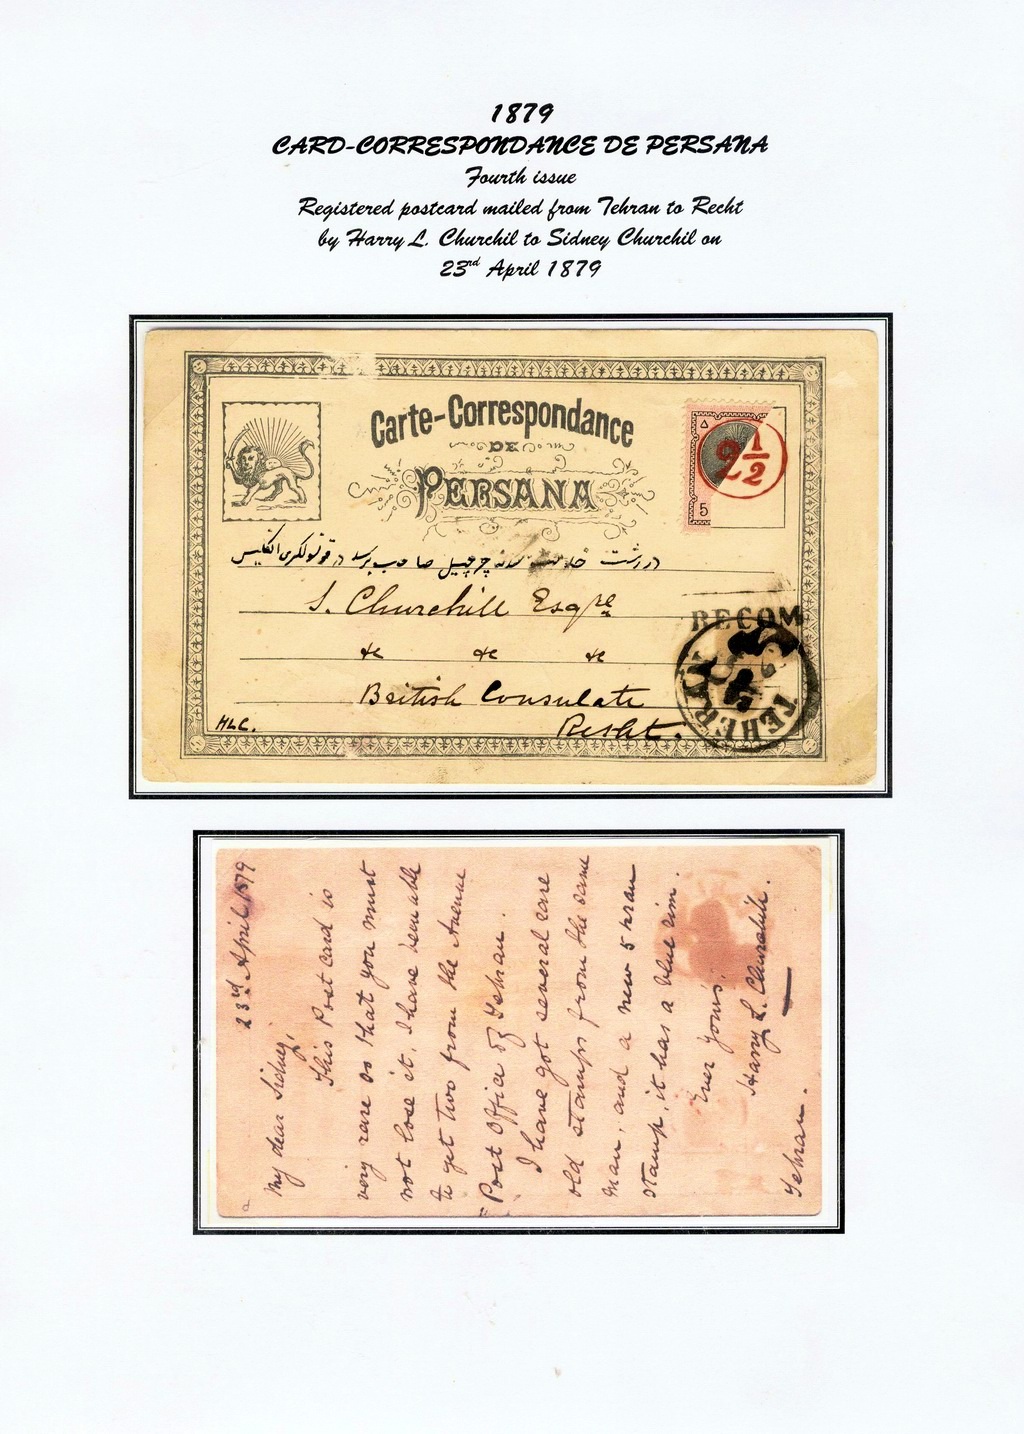 1879
CARD-CORRESPONDANCE DE PERSANA
Fourth issue
Registered postcard mailed from Tehran to Recht
by Harry L. Churchil to Sidney Churchil on
23rd April 1879
Carte-Correspondance
DE
PERSANA
5
2 1/2
در رشت صاحب برسد در قونسولگری انگلیس
S. Churchill Esqre
&c &c &c
British Consulate
Resht.
HLC.
RECOM
TEHERAN
23rd April 1879
My dear Sidney,
This Post card is
very rare so that you must
not lose it. I have been able
to get two from the Avenue
Post Office of Tehran.
I have got several rare
old stamps from the same
man, and a new 5 kran
stamp, it has a blue rim.
Ever Yours,
Harry L. Churchill.
Tehran.